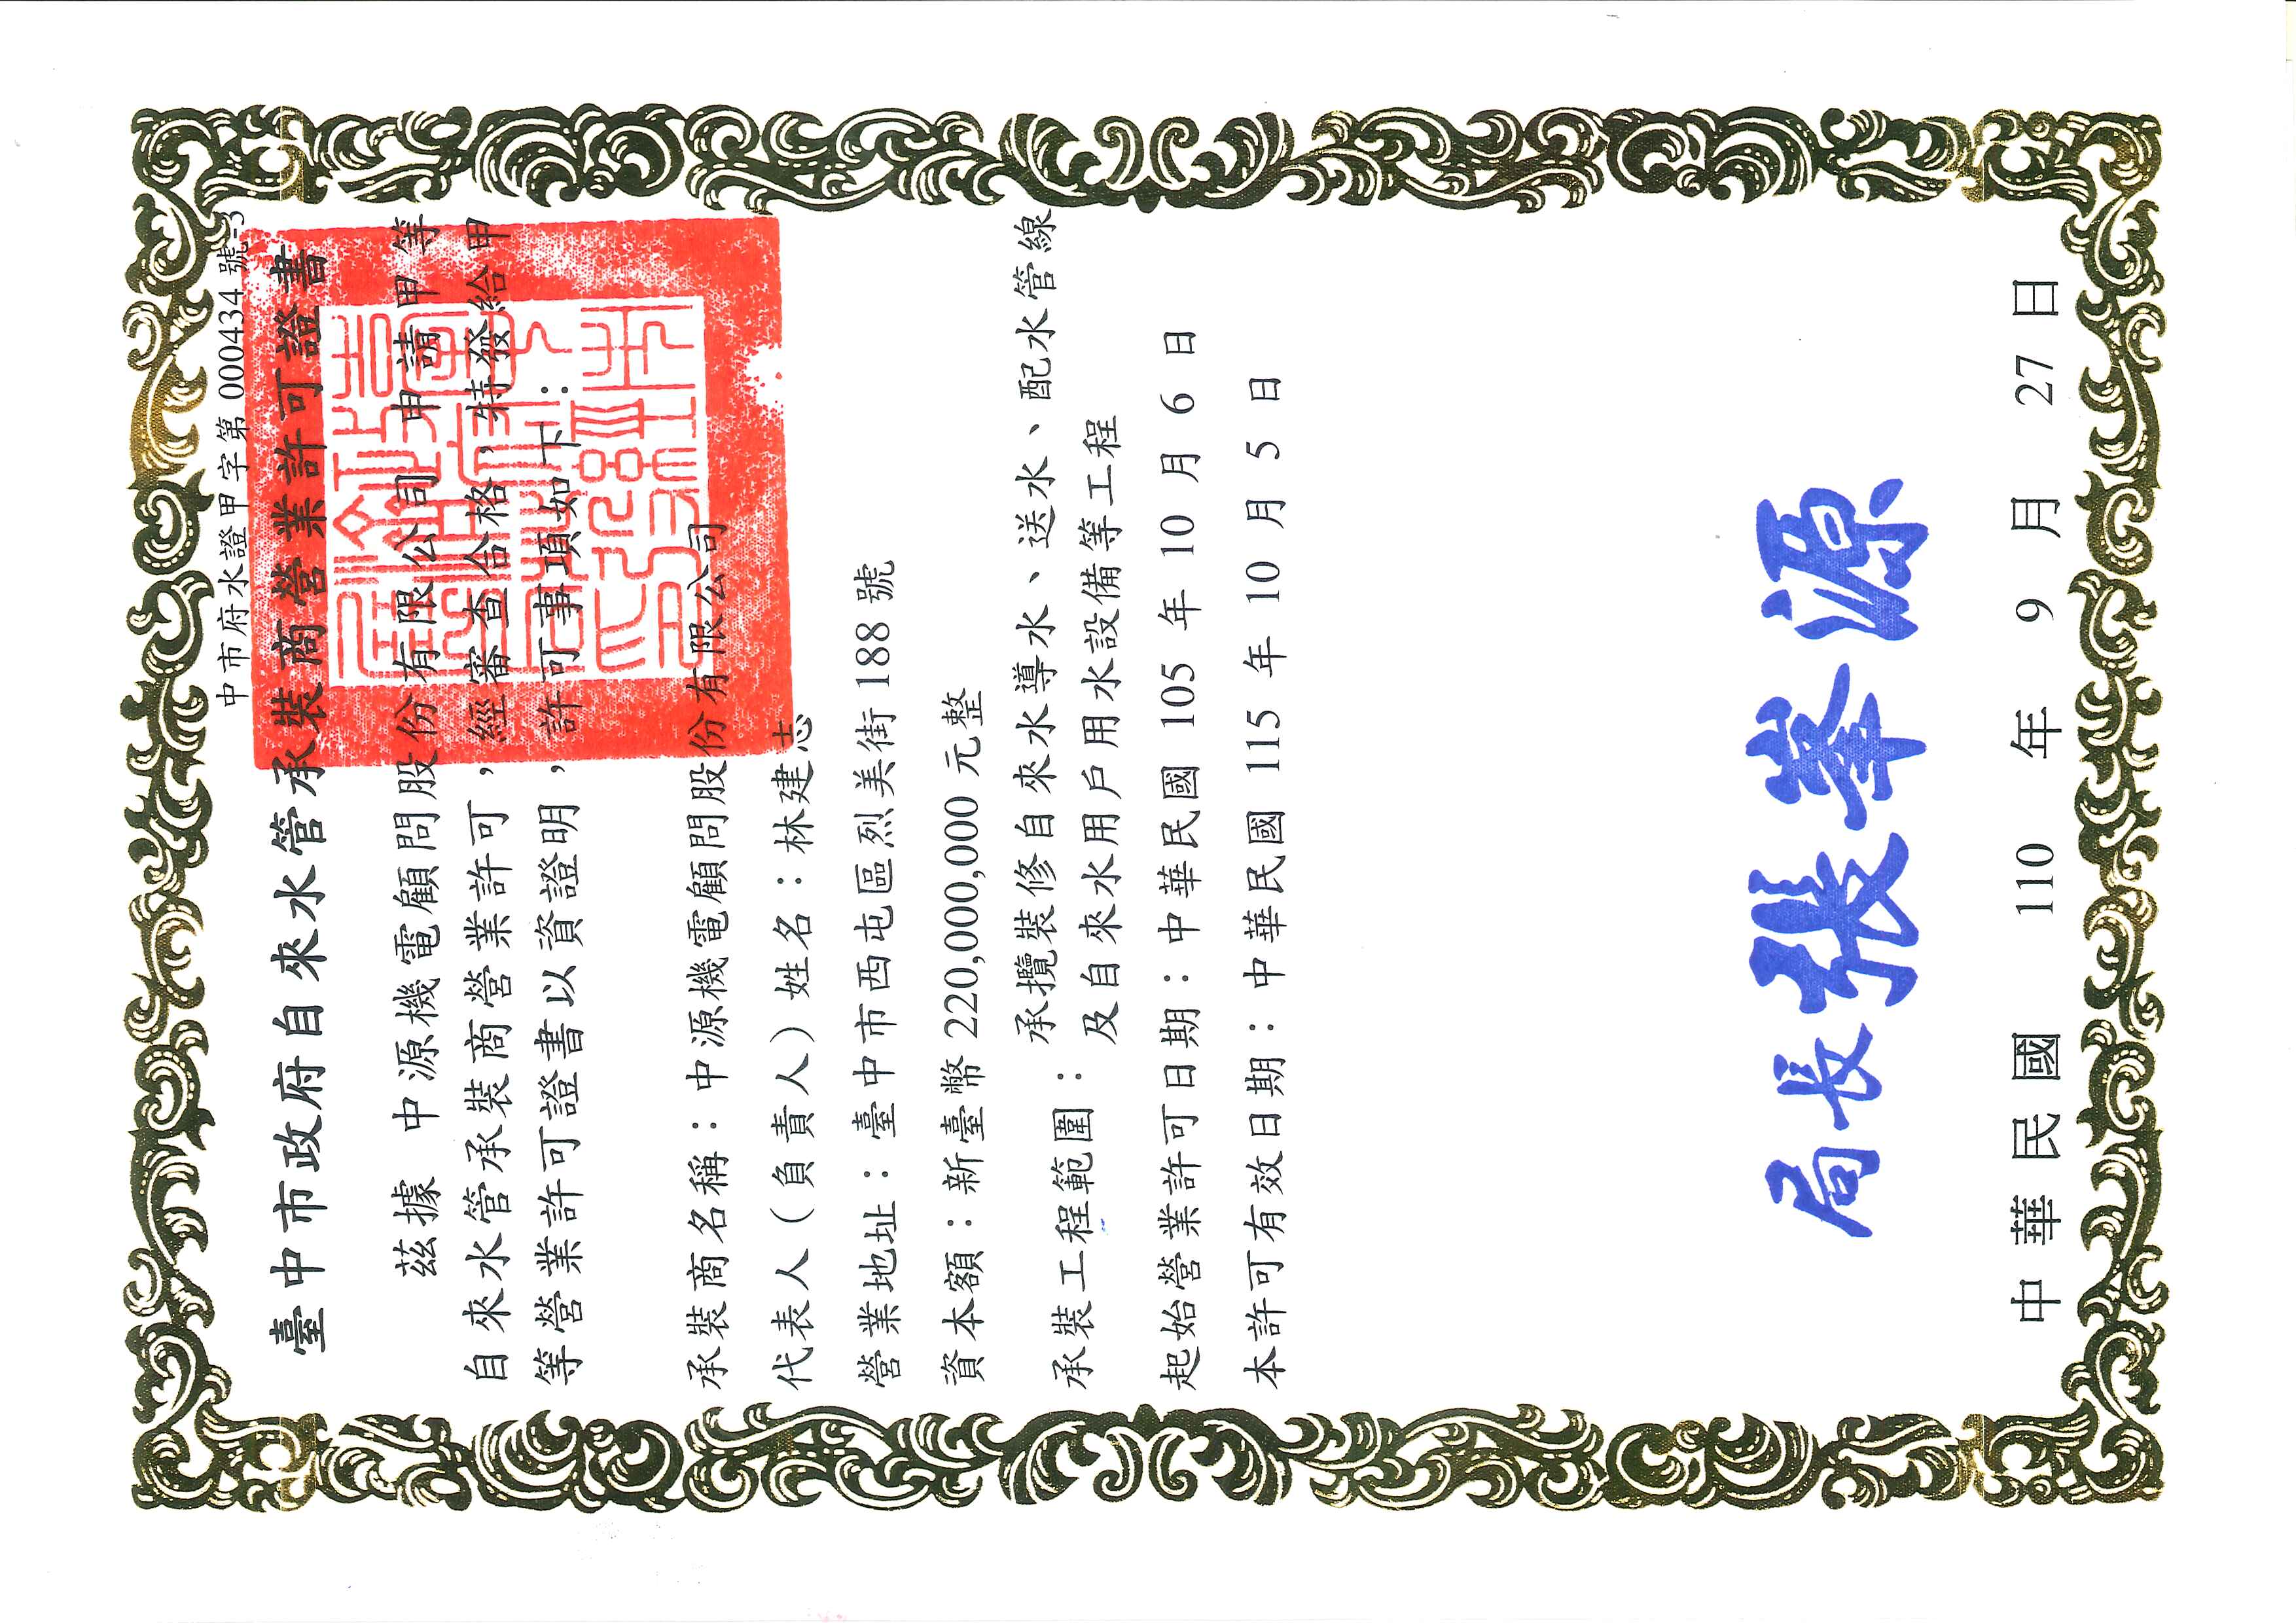 中市府水證甲字第 000434 號-3
臺中市政府自來水管承裝商營業許可證書
茲據 中源機電顧問股份有限公司 申請 甲等
自來水管承裝商營業許可,經審查合格,特發給 甲
等營業許可證書以資證明,許可事項如下:
承裝商名稱:中源機電顧問股份有限公司
代表人(負責人)姓名:林建志
營業地址:臺中市西屯區烈美街 188 號
資本額:新臺幣 220,000,000 元整
承裝工程範圍:承攬裝修自來水導水、送水、配水管線
及自來水用戶用水設備等工程
起始營業許可日期:中華民國 105 年 10 月 6 日
本許可有效日期:中華民國 115 年 10 月 5 日
局長 張峯源
中華民國 110 年 9 月 27 日